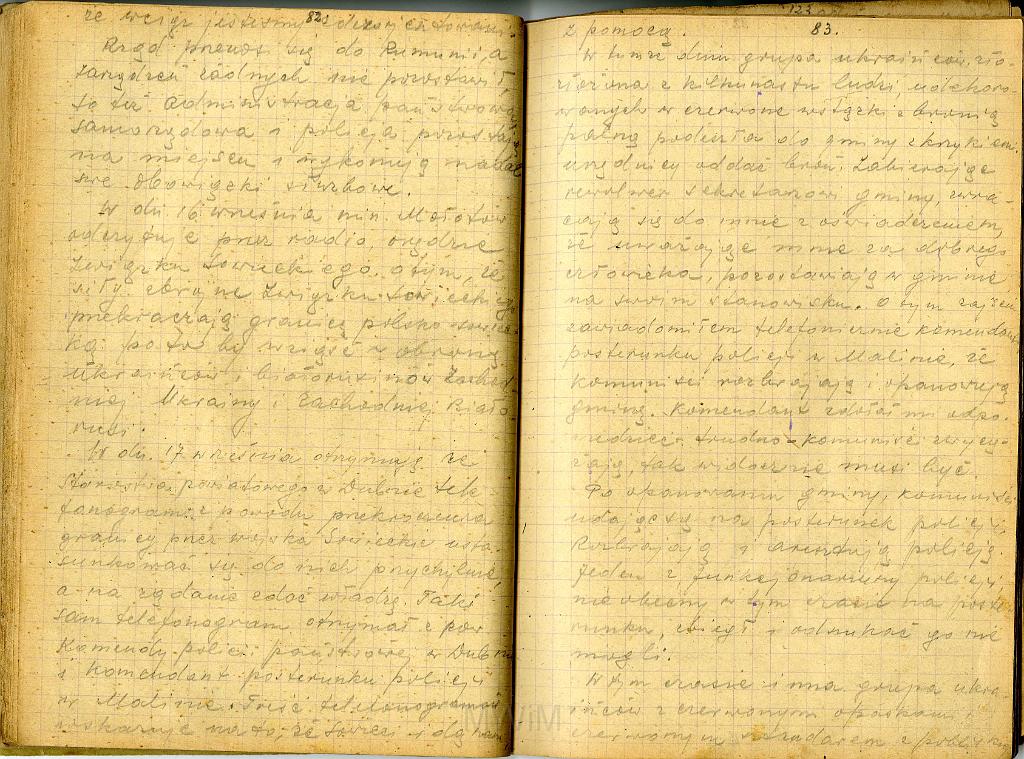 82.
że wciąż jesteśmy
Rząd przenosi się do Rumunii, a
zarządzeń żadnych nie pozostawił,
to też administracja państwowa,
samorządowa i policja pozostają
na miejscu i wykonują nadal
swe obowiązki służbowe.
W dn. 16 września min. Mołotow
odczytuje przez radio, orędzie
Związku Sowieckiego o tym, że
siły zbrojne Związku Sowieckiego
przekraczają granicę polsko-sowiec-
ką po to by wziąść w obronę
Ukraińców i białorusinów Zachod-
niej Ukrainy i Zachodniej Biało-
rusi.
W dn. 17 września otrzymuję ze
Starostwa powiatowego w Dubnie tele-
fonogram: z powodu przekroczenia
granicy przez wojska Sowieckie usto-
sunkować się do nich przychylnie,
a na żądanie zdać władzę. Taki
sam telefonogram otrzymał z pow.
Komendy policji państwowej w Dubnie
i komendant posterunku policji
w Malinie. Treść telefonogramów
wskazuje na to, że sowieci idą nam
83.
z pomocą.
W tymże dniu grupa ukraińców, zło-
żona z kilkunastu ludzi, udekoro-
wanych w czerwone wstążki z bronią
palną podeszła do gminy z krzykiem:
urzędnicy oddać broń. Zabierając
rewolwer sekretarzowi gminy, zwra-
cają się do mnie z oświadczeniem,
że uważając mnie za dobrego
człowieka, pozostawiają w gminie
na swoim stanowisku. O tym zajściu
zawiadomiłem telefonicznie komendanta
posterunku policji w Malinie, że
komuniści rozbrajają i opanowują
gminę. Komendant zdołał mi odpo-
wiedzieć: trudno - komuniści zwycię-
żają, tak widocznie musi być.
Po opanowaniu gminy, komuniści
udają się na posterunek policji.
Rozbrajają i aresztują policję.
Jeden z funkcjonariuszy policji
nieobecny w tym czasie na poste-
runku, zbiegł i odszukać go nie
mogli.
W tym czasie inna grupa ukra-
ińców z czerwonymi opaskami i
czerwonym sztandarem z pobliskiej
MWiM